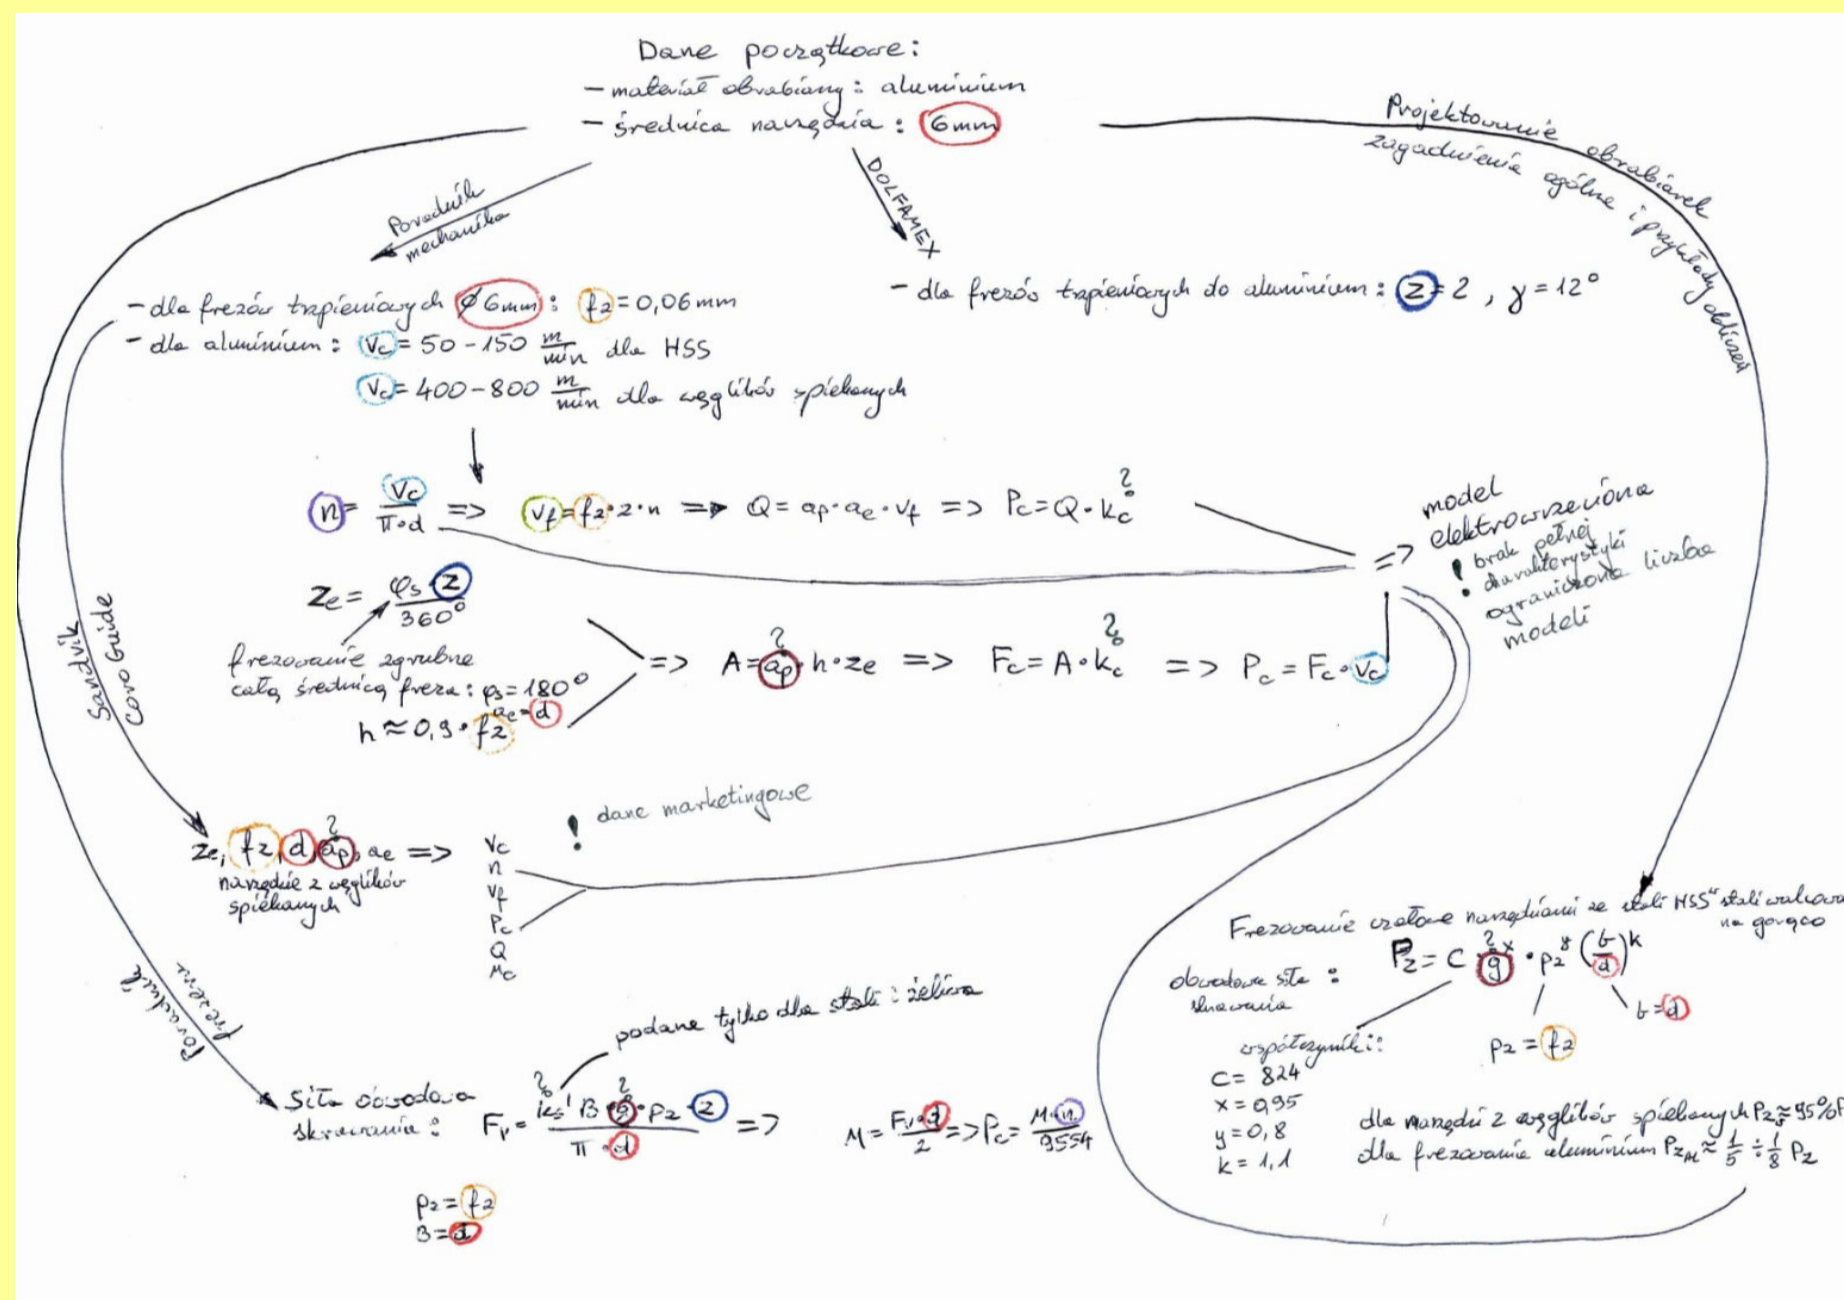 Dane początkowe:
– materiał obrabiany: aluminium
– średnica narzędzia: 6mm
Poradnik
mechanika
DOLFAMEX
Projektowanie obrabiarek
zagadnienia ogólne i przykłady obliczeń
– dla frezów trzpieniowych ø6mm: fz = 0,06 mm
– dla aluminium: Vc = 50 – 150 m/min dla HSS
Vc = 400 – 800 m/min dla węglików spiekanych
– dla frezów trzpieniowych do aluminium: z = 2, γ = 12°
n = Vc/(π·d) => Vf = fz·z·n => Q = ap·ae·vf => Pc = Q·kc ?
=> model
elektrowrzeciona
! brak pełnej
charakterystyki
ograniczona liczba
modeli
ze = φs·z/360°
frezowanie zgrubne
całą średnicą freza: φs = 180°
ae = d
h ≈ 0,9·fz
=> A = ap·h·ze => Fc = A·kc => Pc = Fc·Vc
? ?
Sandvik
Coro Guide
ze, fz, d, ap, ae =>
?
narzędzie z węglików
spiekanych
Vc
n
Vf
Pc
Q
Mc
! dane marketingowe
Poradnik
frezera
podane tylko dla stali i żeliwa
Siła obwodowa
skrawania:
Fv = ks' B·g·pz·z/(π·d) => M = Fv·d/2 => Pc = M·n/9554
? ?
pz = fz
B = d
Frezowanie czołowe narzędziami ze stali HSS stali walcowa
na gorąco
obwodowa siła
skrawania :
Pz = C g^x · pz^y (b/d)^k
?
b = d
pz = fz
współczynniki:
C = 824
x = 0,95
y = 0,8
k = 1,1
dla narzędzi z węglików spiekanych Pzs ≈ 95% P
dla frezowania aluminium PzAl ≈ 1/5 ÷ 1/8 Pz